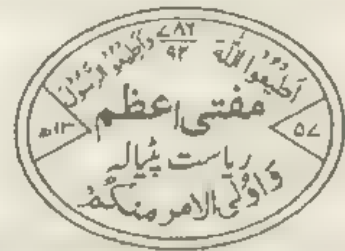 ۷۸۶
۹۲
أطیعوا اللّٰہ وأطیعوا الرّسول
مفتی اعظم
۱۳ھ
۵۷
ریاست پٹیالہ
وَاُولِی الامر منکم